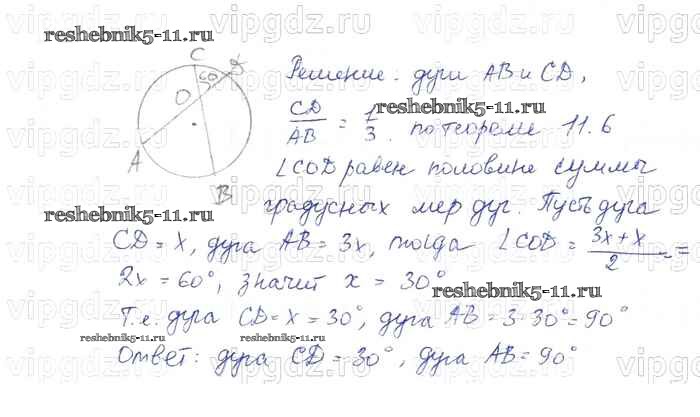 vipgdz.ru vipgdz.ru vipgdz.ru
reshebnik5-11.ru
C
50
O
A
B
Решение: дуги AB и CD,
CD/AB = 1/3. по теореме 11.6
reshebnik5-11.ru
∠COD равен половине суммы
reshebnik5-11.ru
градусных мер дуг. Пусть дуга
CD = x, дуга AB = 3x, тогда ∠COD = (3x+x)/2 =
2x = 60°, значит x = 30°
reshebnik5-11.ru
Т.е. дуга CD = x = 30°, дуга AB = 3·30° = 90°
reshebnik5-11.ru reshebnik5-11.ru
Ответ: дуга CD = 30°, дуга AB = 90°